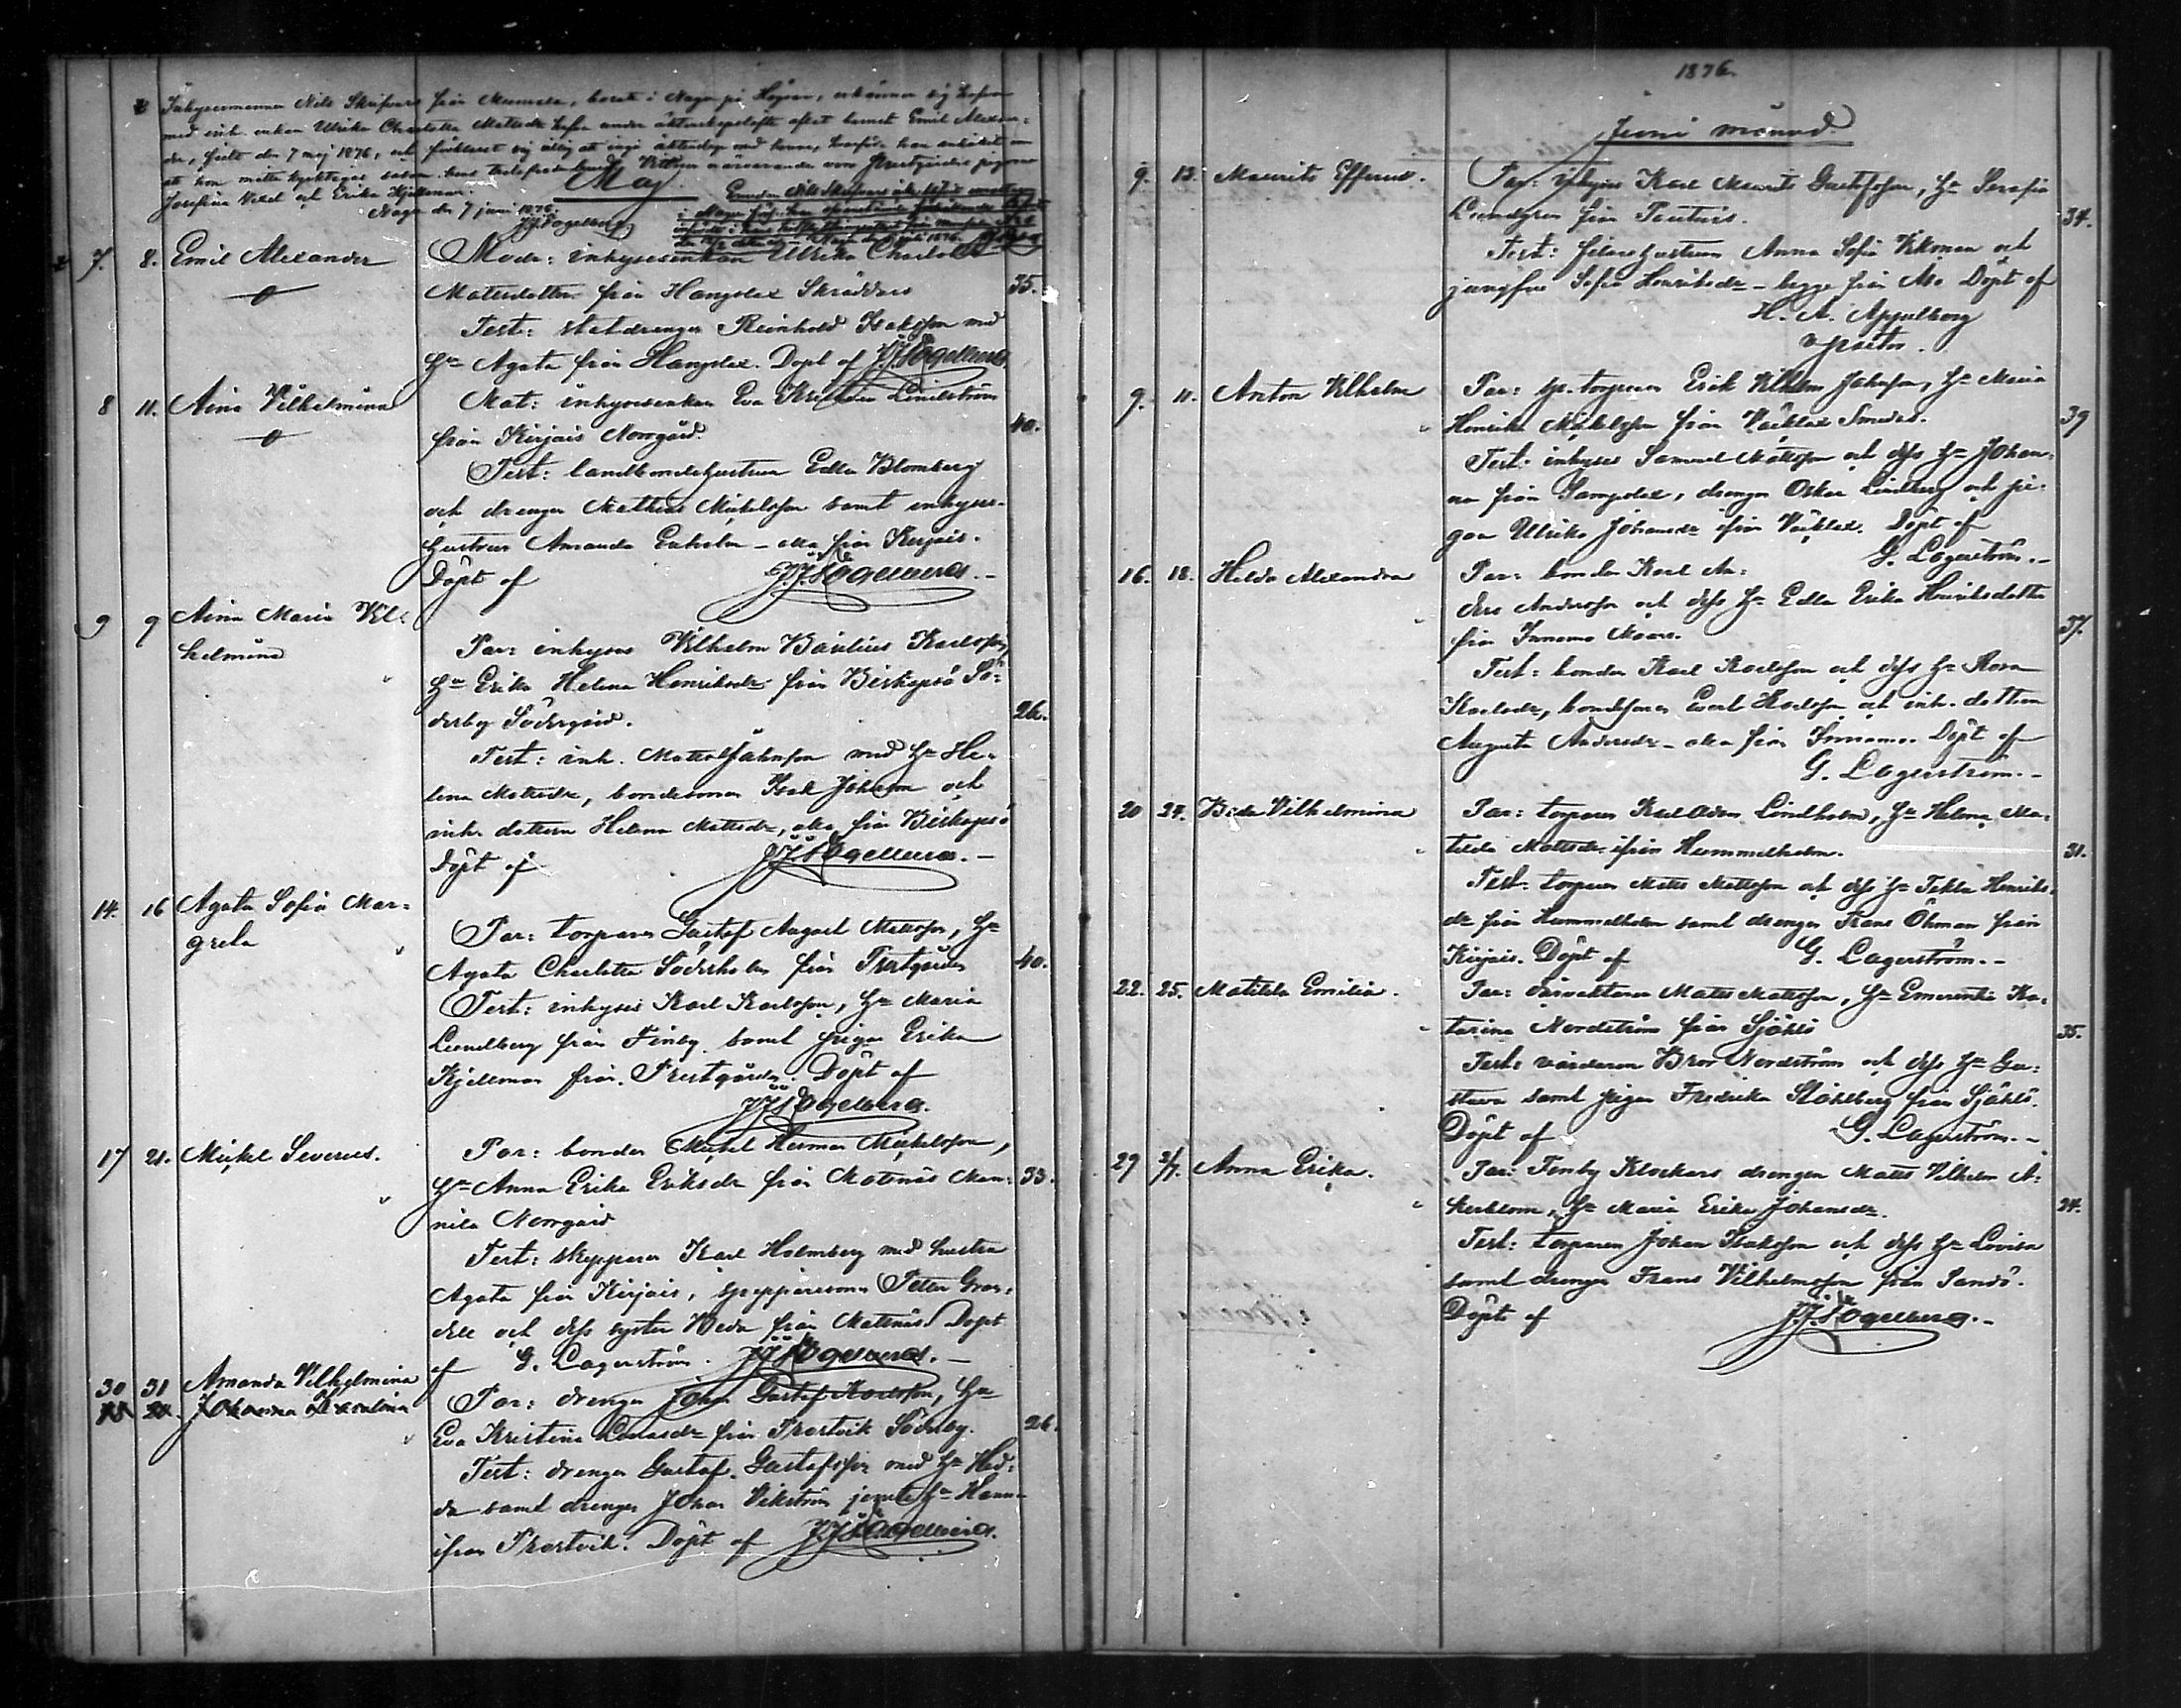 Inhysesmannen Nils Skrifvars från Mumnala, borta i Nagu på Högsar, erkänner sig hafva
med inh. enkan Ulrika Charlotta Matsdr hafva under äktenskapslöfte aflat barnet Emil Alexan:
der, född den 7 maj 1876, och förklarat sig villig at ingå äktenskap med henne, hvarför han anhållit om
at hon måtte kyrktagas såsom hans trolofvade hustru. Vittnen närvarande voro Prestgårds pigorna
Josefina Vikel och Erika Kjellman.
Nagu den 7 juni 1876.
J.J. Fogelberg
Maj.
7. 8. Emil Alexander
Moder: inhysesenkan Ulrika Charlotta
Matsdotter från Hangslax Skräddars 35.
Test: statdrengen Reinhold Isaksson med
Hu Agata från Hangslax. Döpt af J.J. Fogelberg.
8 11. Aina Vilhelmina
Mat: inhysesenkan Eva Kristina Lindström
från Kirjais Norrgård. 40.
Test: landbondehustrun Edla Blomberg
och drengen Mathias Mickelsson samt inhyses-
hustrun Amanda Enholm - alla från Kirjais.
Döpt af J.J. Fogelberg. -
9 9 Aina Maria Vil:
helmina
Par: inhyses Vilhelm Basilius Karlsson,
Hu Erika Helena Henriksdr från Biskopsö Sö:
derby Södergård. 26.
Test: inh. Matts Johnsson med Hu He-
lena Matsdr, bondesonen Karl Johnsson och
inh. dottern Helena Mattsdr, alla från Biskopsö
Döpt af J.J. Fogelberg. -
14. 16 Agata Sofia Mar=
greta
Par: torparen Gustaf August Mattsson, Hu
Agata Charlotta Söderholm från Prestgården 40.
Test: inhyses Karl Karlsson, Hu Maria
Lundberg från Finby samt pigan Erika
Kjellman från Prestgården. Döpt af
J.J. Fogelberg.
17 21. Mickel Severus.
Par: bonden Mickel Herman Mickelsson,
Hu Anna Erika Eriksdr från Mattnäs Man: 33.
nila Norrgård
Test: skepparen Karl Holmberg med hustru
Agata från Kirjais, skepparesonen Petter Gran:
dell och dess syster Heda från Mattnäs Döpt
af G. Lagerström. J.J. Fogelberg. -
30 31 Amanda Vilhelmina
Johanna Karolina
Par: drengen Johan Gustaf Karlsson, Hu
Eva Kristina Lucasdr från Prostvik Söderby. 26.
Test: drengen Gustaf Gustafsson med Hu Hed:
da samt drengen Johan Vikström jemte Hu Hanna
ifrån Prostvik. Döpt af J.J. Fogelberg.
1876.
Juni månad.
9. 13. Maurits Efferus.
Par: inhyses Karl Maurits Gustafsson, Hu Serafia
Lundgren från Pentnäs. 34.
Test: fiskarehustrun Anna Sofia Vikman och
jungfru Sofia Henriksdr - begge från Mo Döpt af
H. A. Appelberg
v pastor.
9. 11. Anton Vilhelm
Par: sp. torparen Erik Vilhelm Johnsson, Hu Maria
Henrika Mickelsson från Väcklax Smeds. 39
Test: inhyses Samuel Mattsson och dess Hu Johan:
na från Sampslax, drengen Oskar Lindberg och pi:
gan Ulrika Johansdr ifrån Väcklax. Döpt af
G. Lagerström. -
16. 18. Hilda Alexandra
Par: bonden Karl An:
ders Andersson och dess Hu Edla Erika Henriksdotter
från Innamo Moars. 37.
Test: bonden Karl Karlsson och dess Hu Rosa
Karlsdr, bondesonen Evert Karlsson och inh. dottern
Augusta Andersdr - alla från Innamo. Döpt af
G. Lagerström. -
20 24. Beda Vilhelmina
Par: torparen Karl Adam Lindholm, Hu Helena Ma:
tilda Mattsdr ifrån Hummelholm. 31.
Test: torparen Matts Mattsson och dess Hu Tekla Henriks-
dr från Hummelholm samt drengen Frans Öhman från
Kirjais. Döpt af G. Lagerström. -
22. 25. Matilda Emilia.
Par: Matts Mattsson, Hu Emerentia Ka:
tarina Nordström från Sjöhls 35.
Test: Bror Nordström och dess Hu Gu:
stava samt pigan Fredrika Ståhlberg från Sjöhls.
Döpt af G. Lagerström. -
29 2/7. Anna Erika.
Par: Finby Klockars drengen Matts Vilhelm A:
kerblom, Hu Maria Erika Johansdr. 24.
Test: torparen Johan Isaksson och dess Hu Lovisa
samt drengen Frans Vilhelmsson från Sandö.
Döpt af J.J. Fogelberg. -